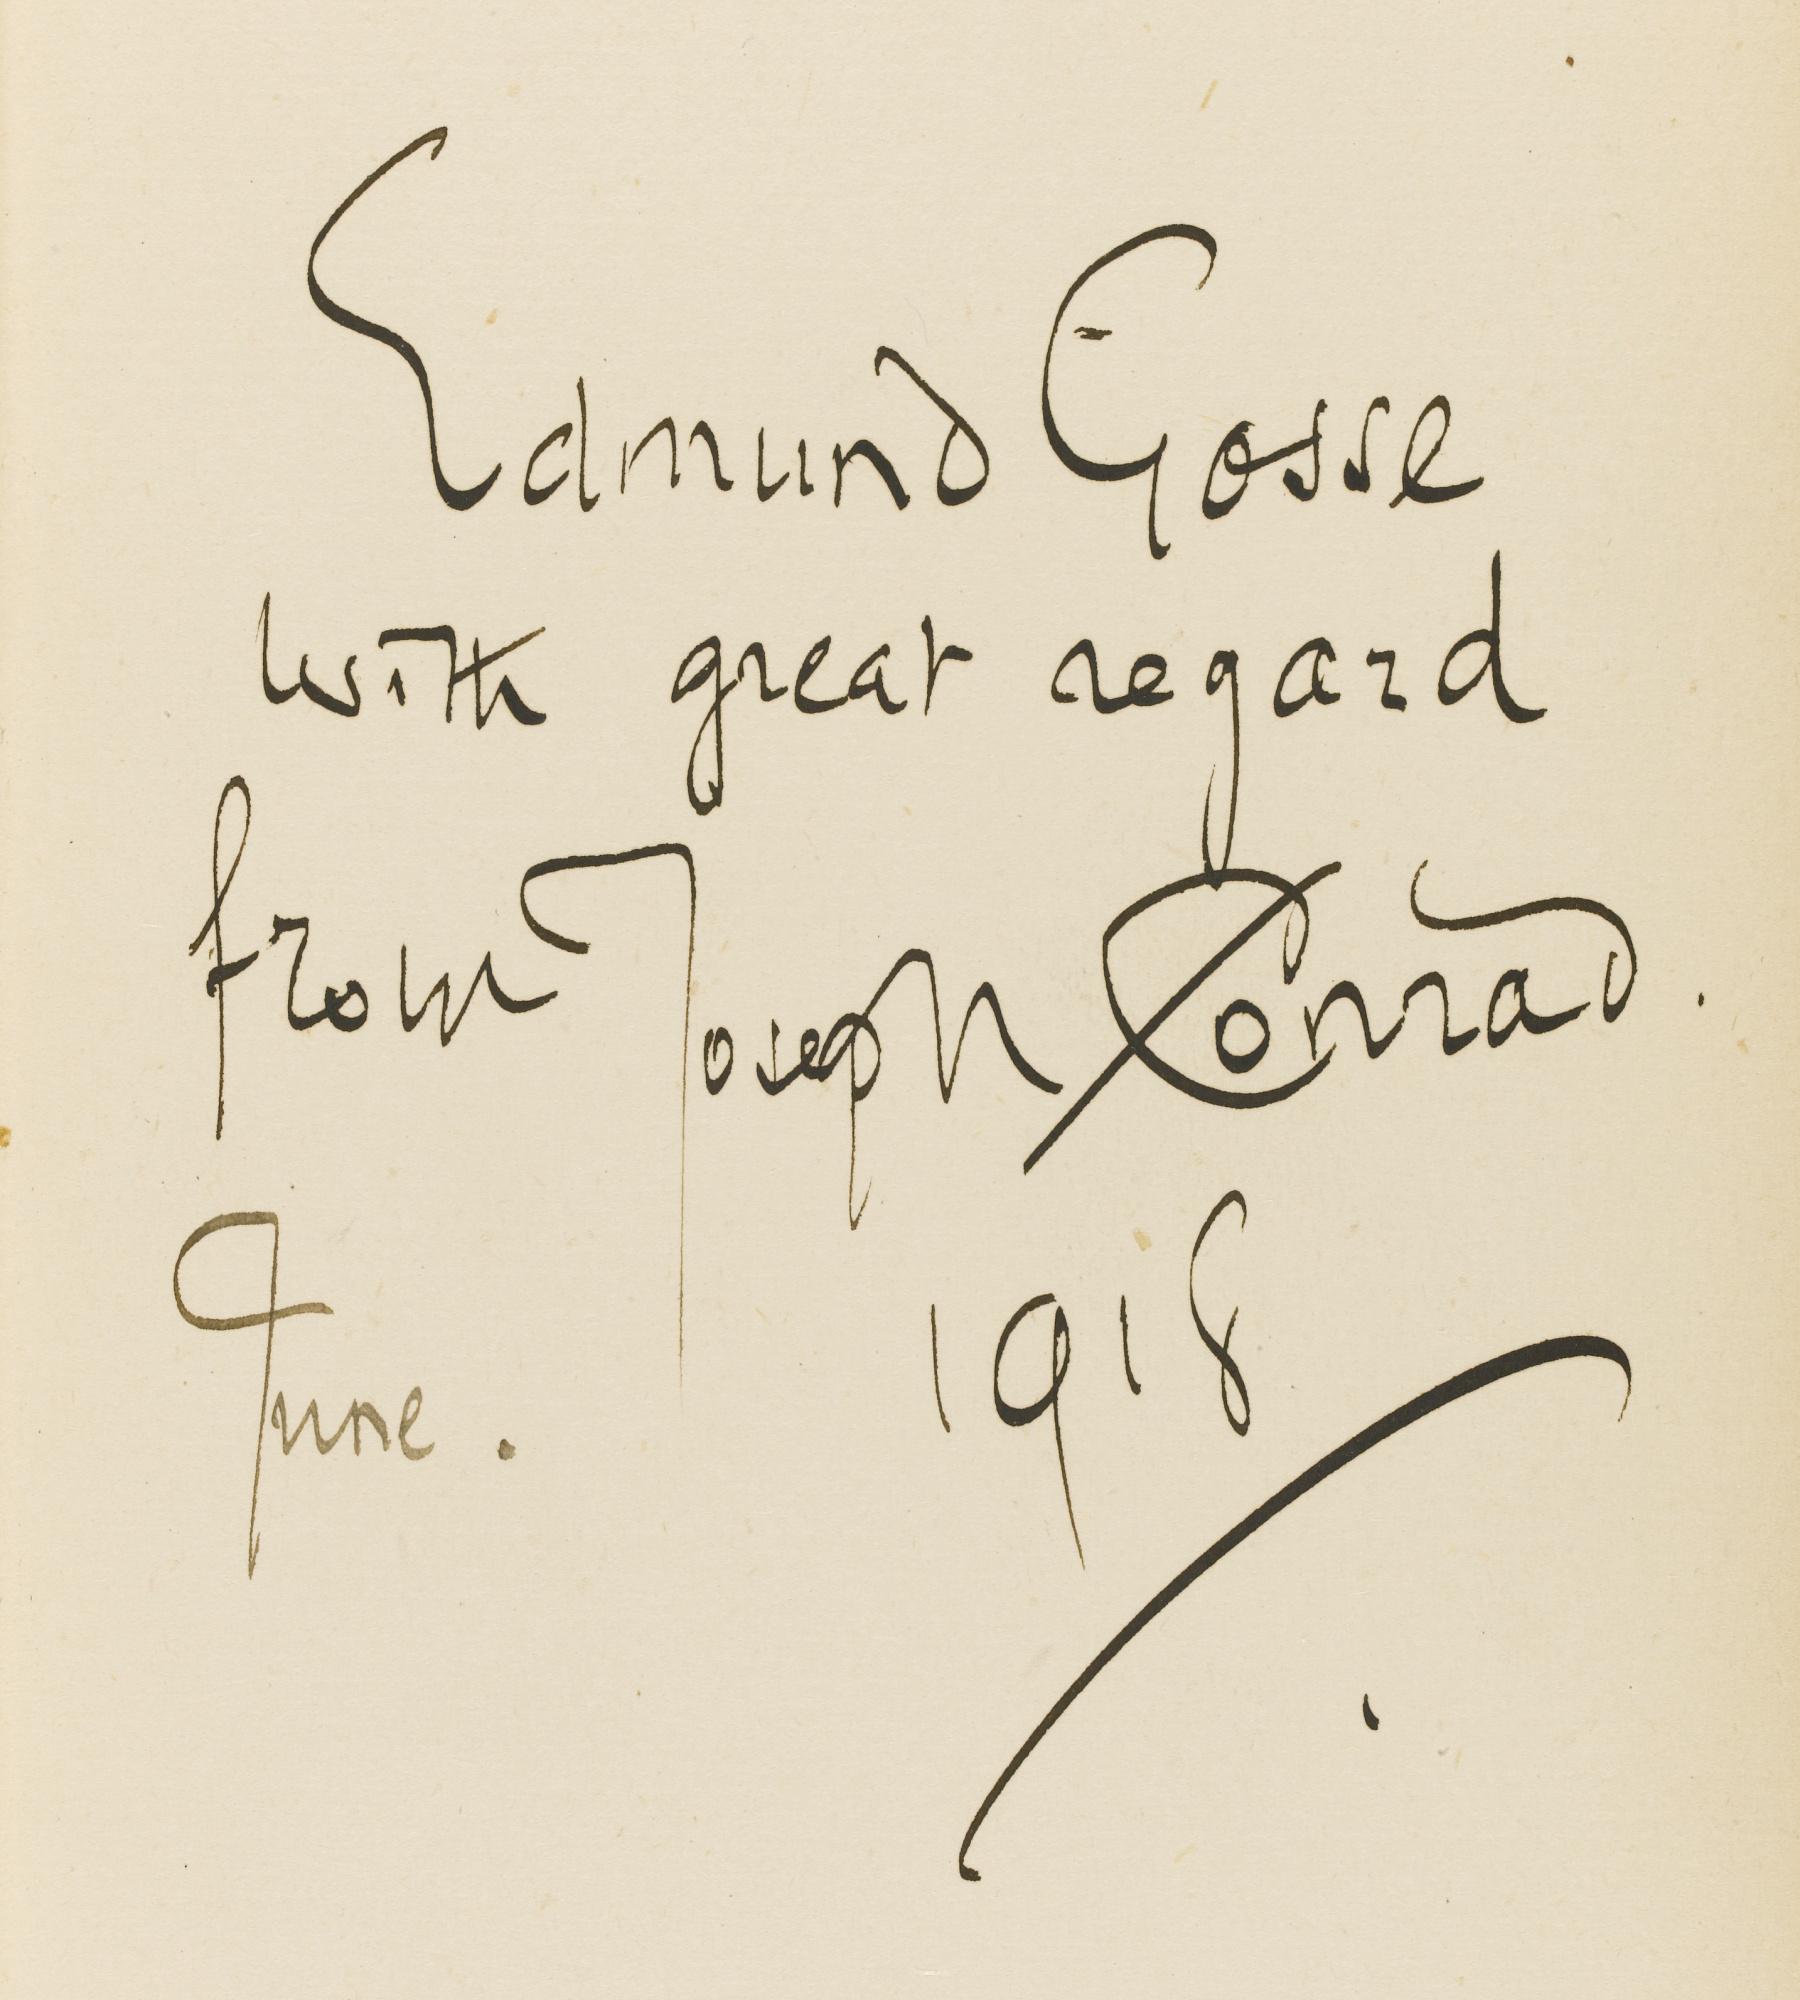 Edmund Gosse
with great regard
from Joseph Conrad.
June. 1918